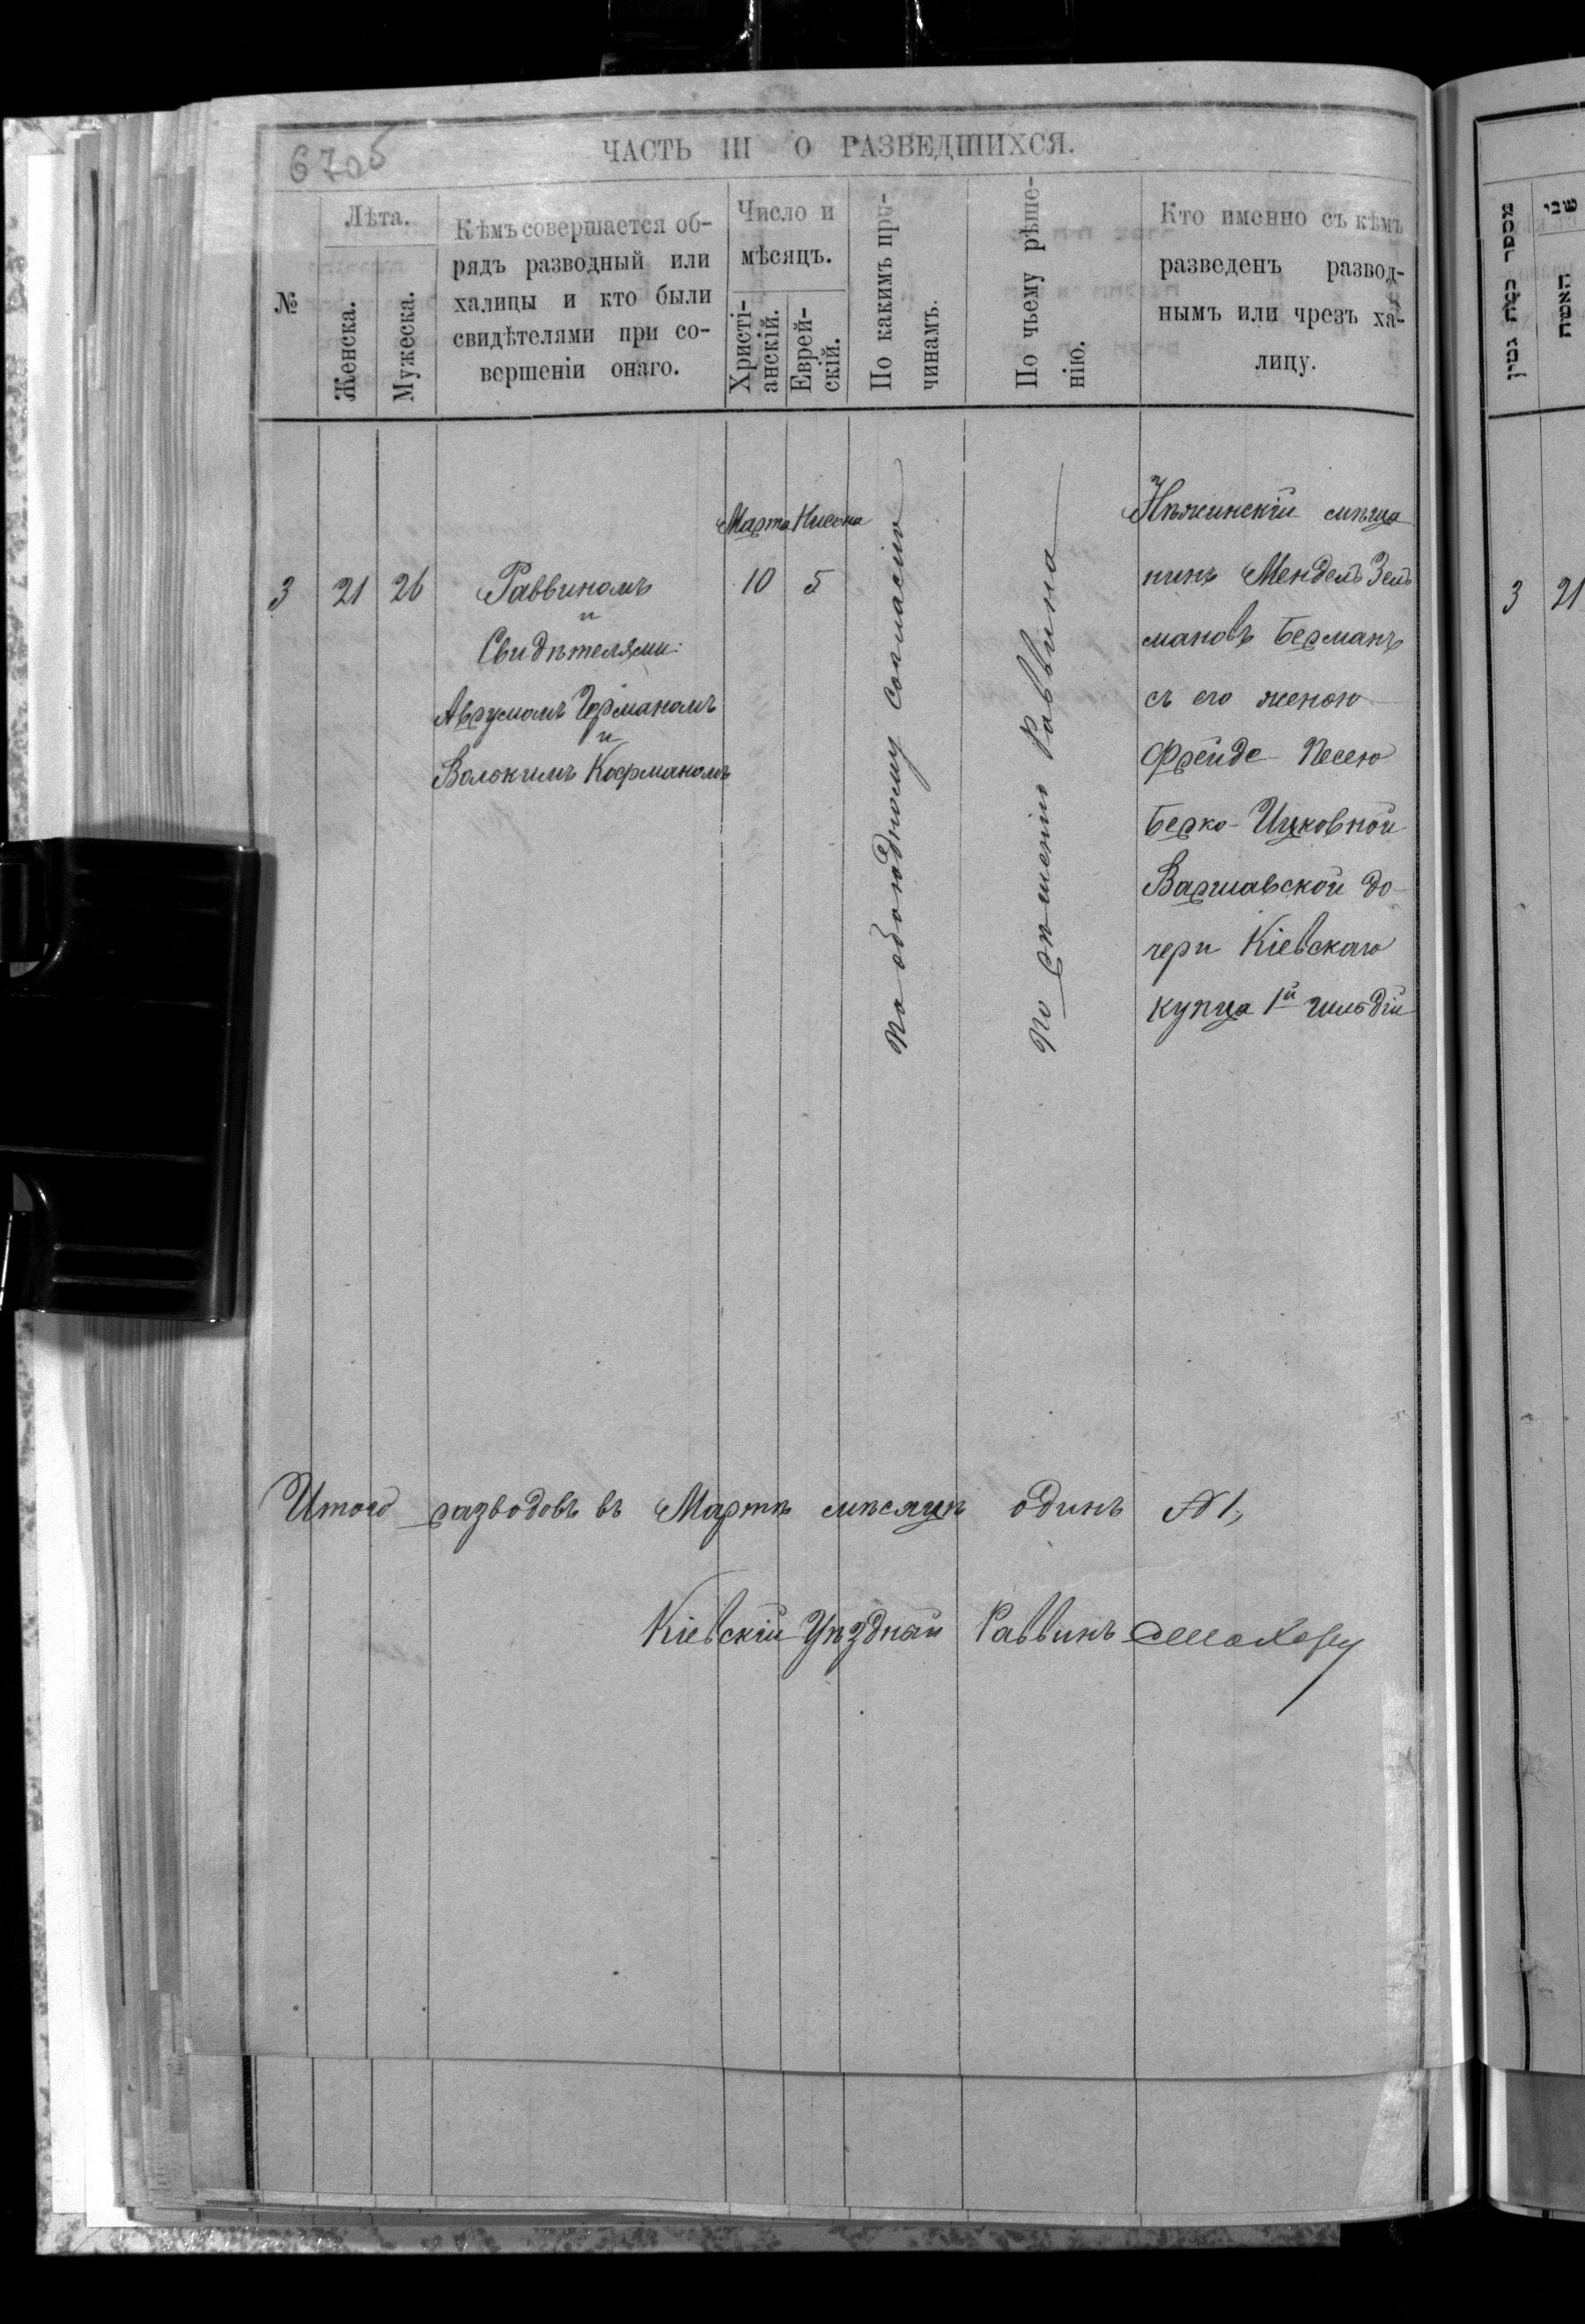 670б
ЧАСТЬ III О РАЗВЕДШИХСЯ.
№
Лѣта.
Женска.
Мужеска.
Кѣмъ совершается об-
рядъ разводный или
халицы и кто были
свидѣтелями при со-
вершеніи онаго.
Число и
мѣсяцъ.
Христі-
анскій.
Еврей-
скій.
По какимъ при-
чинамъ.
По чьему рѣше-
нію.
Кто именно съ кѣмъ
разведенъ развод-
нымъ или чрезъ ха-
лицу.
3 21 26
Раввиномъ
и
Свидѣтелями:
Аврумомъ Гормономъ
и
Волокимъ Кофманомъ
Марта Нисона
10 5
По обоюдному согласію
По рѣшенію Раввина
Нѣжинскій мѣща
нинъ Мендель Зель
мановъ Берманъ
съ его женою
Фрейде-Песею
Берко-Ицковной
Варшавской до-
чери Кіевскаго
купца 1й гильдіи
Итого разводовъ въ Мартѣ мѣсяцѣ одинъ № 1,
Кіевскій Уѣздный Раввинъ
מספר
גטין
האשה
שני
3 21